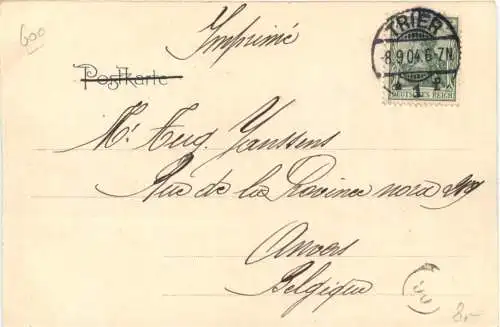 600
Imprimé
TRIER
8.9.04.6-7N.
* 1 *
DEUTSCHES REICH
Postkarte
Mr Aug. Yanssens
Rue de la Province nord
Anvers
Belgique
8.-